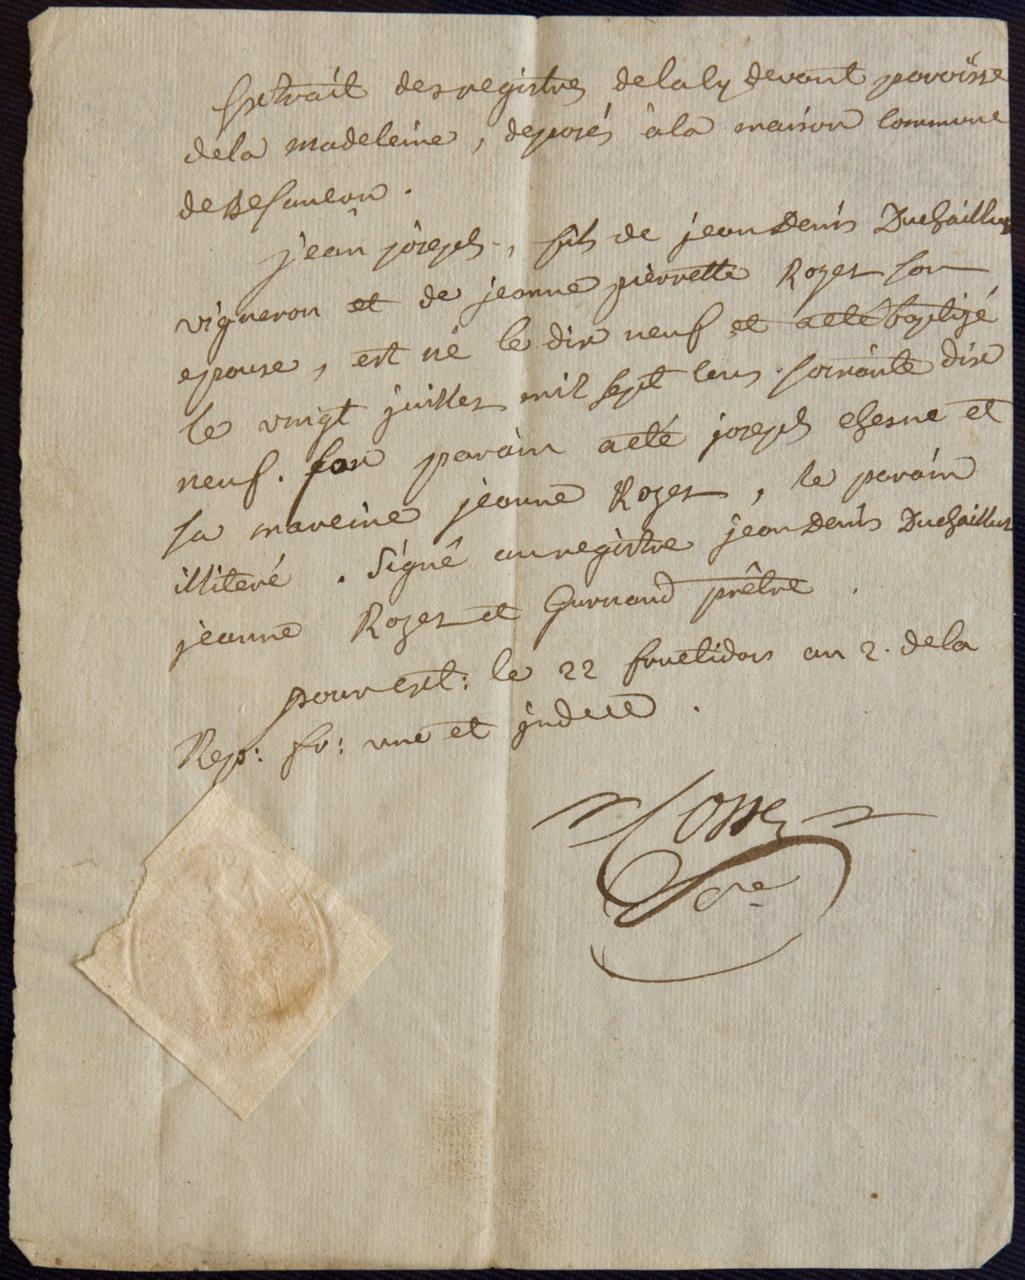 Extrait des registres de la cy devant paroisse
de la madeleine, deposés à la maison commune
de Besancon.
jean joseph, fils de jean Denis Duchaillut
vigneron et de jeanne pierrette Rozet son
epouse, est né le dix neuf et a été baptizé
le vingt juillet mil sept cens soixante dix
neuf. son parain a eté joseph chesne et
sa mareine jeanne Rozet, le parain
illiteré. Signé au registre jean Denis Duchaillut
jeanne Rozet et Gurnaud prêtre.
pour ext: le 22 fructidor an 2. de la
Rep: fr: une et jndiv